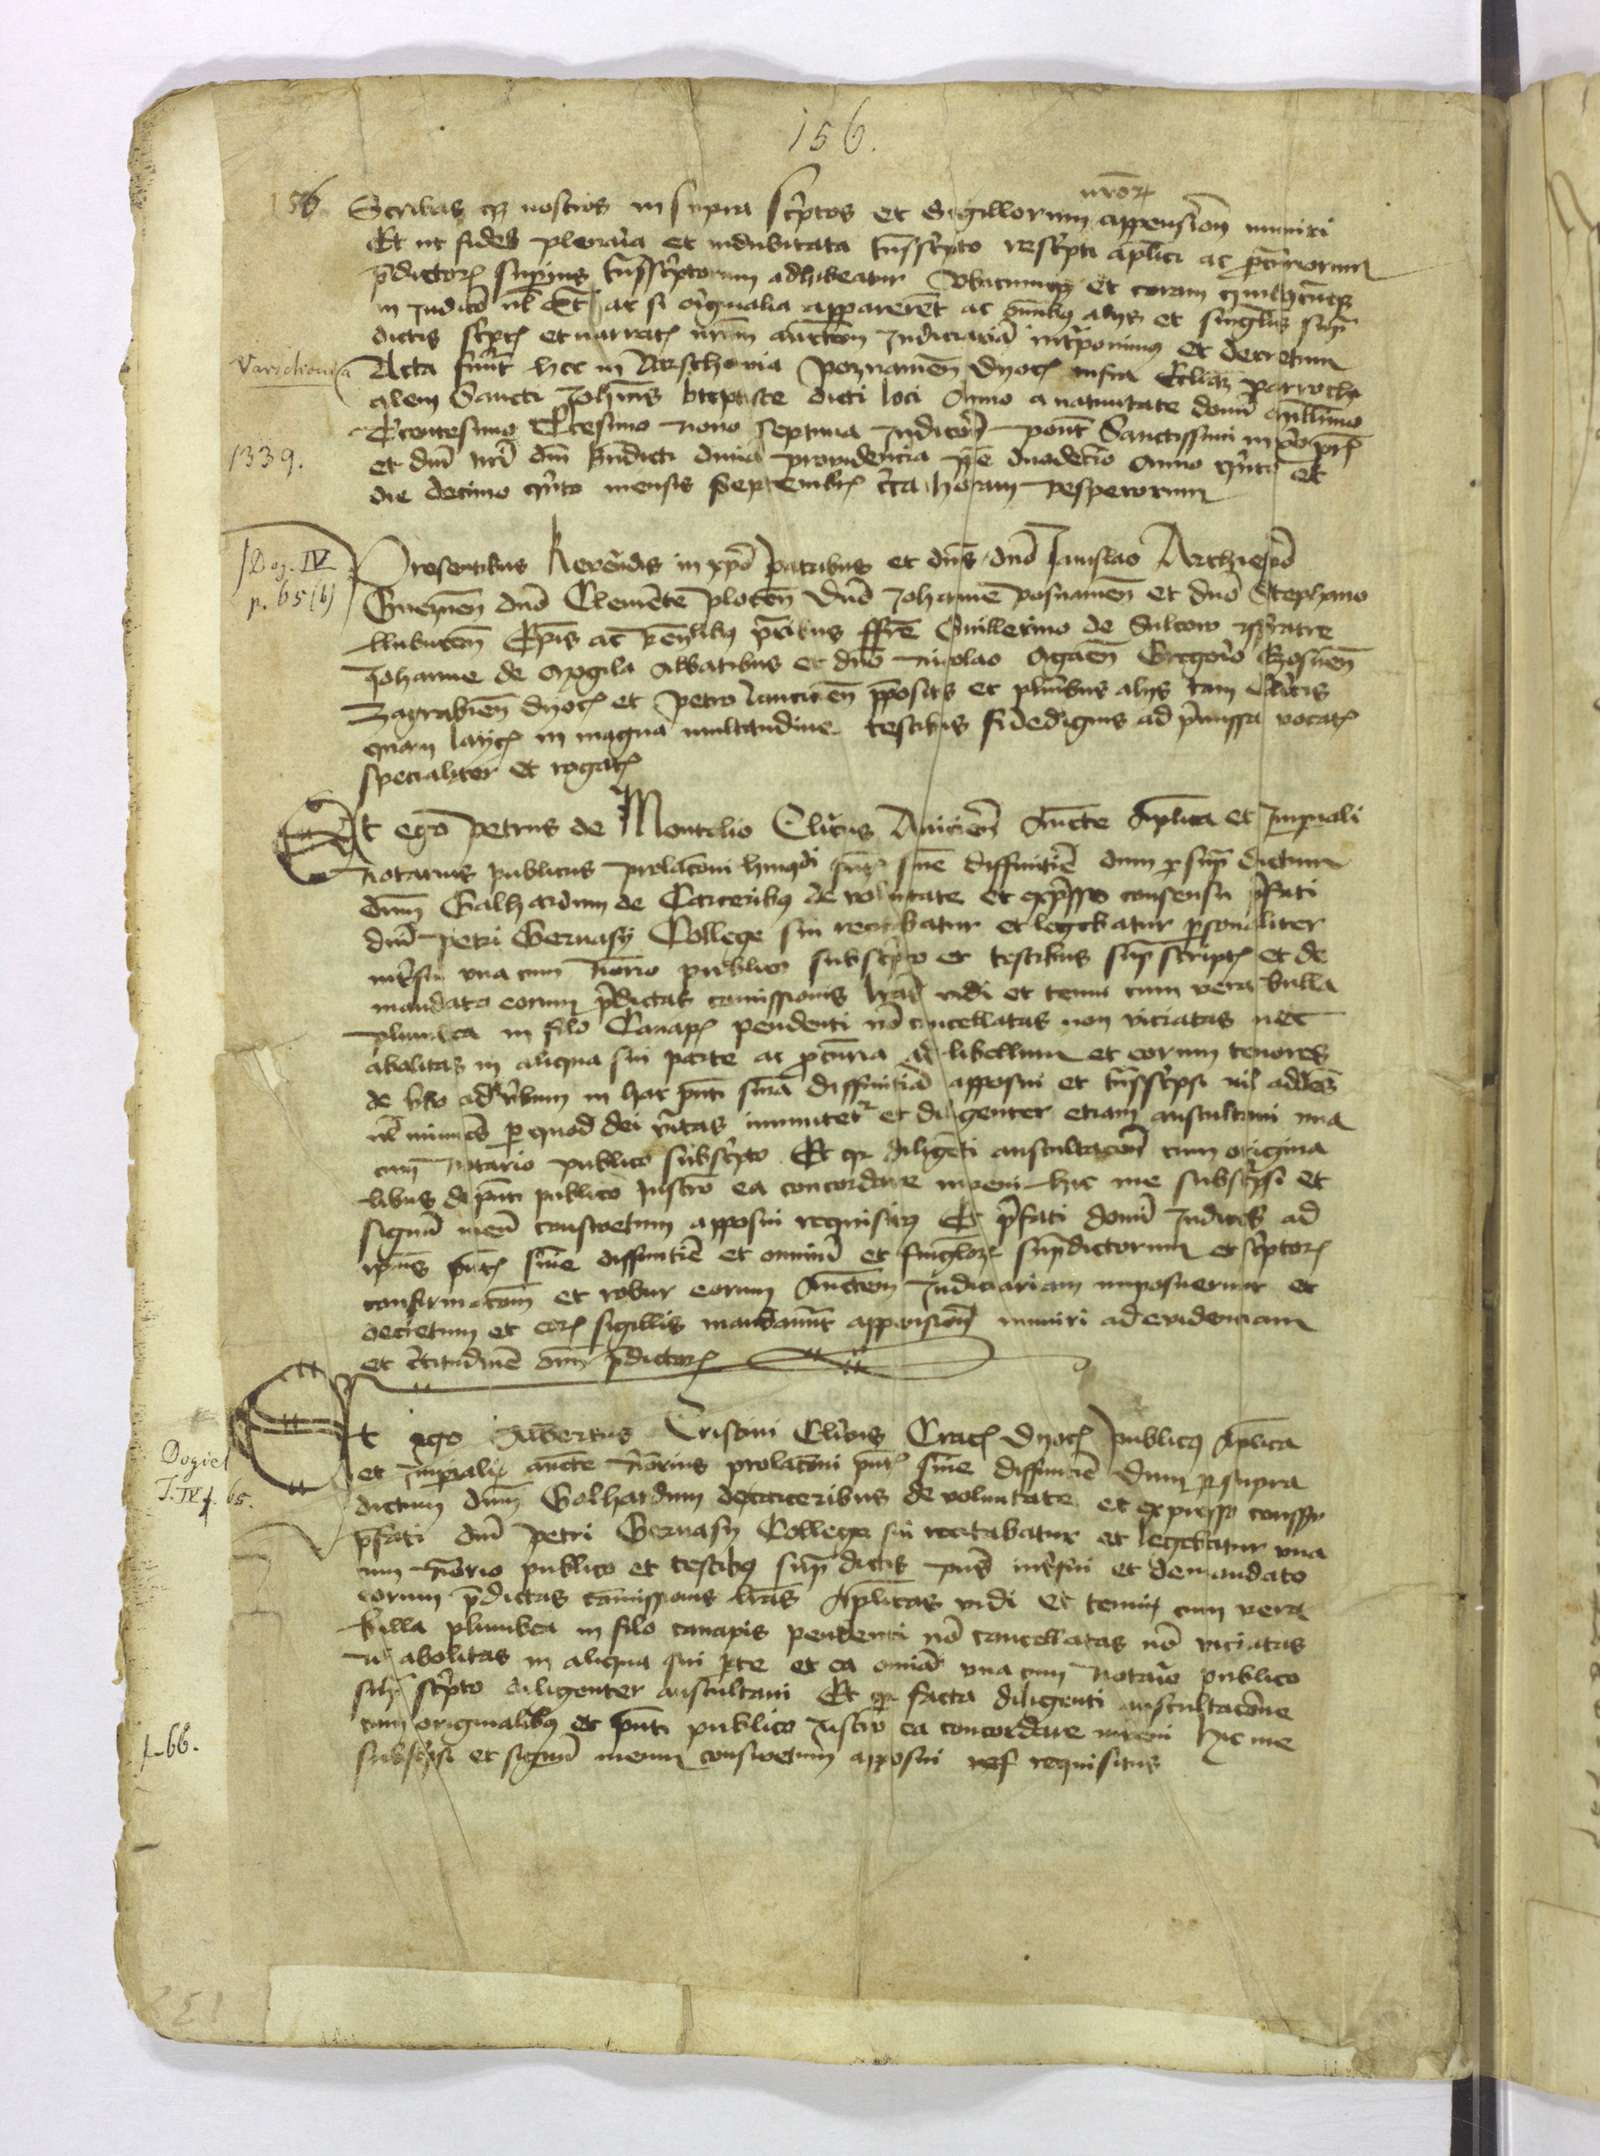 156.
156 Scribas q3 nostros in supra scptos et Sigillorum nroꝝ appension muniri
Et ut fides plenaria et indubitata tnsscpto rescpti aplici ac pcuriorum
pdictoꝝ superius tnsscptorum adhibeatur Ubicumq3 et coram quibuscuq3
in Judico ul Ext ac si originalia apparerent ac omnibus alijs et singlis sup
dictis scptꝭ et narratꝭ nram auctem Judiciariam intponimus et decretum
Varschovia Acta sunt hec in Warschovia Poznanien Dyocꝭ infra Eccliam parrochi
alem Sancti Johnis baptiste dicti loci Anno a nativitate domi Millimo
CCcentesimo CCcesimo Nono Septima Indicone pont Sanctissimi in xpo prꝭ
1339. et dni nri dni Bndicti divina providencia ppe duodecio Anno quto et
die decimo quto mensis Septembrꝭ circa horam vesperorum
Dog. IV p. 65 (b) Presentibus Reverendis in xpo patribus et dnis dno Janislao Archiepo
Gneznen dno Clemente plocen Dno Johanne Posnanien et dno Stephano
llubucen Epis ac venlibus pribus ffre Guillermo de Sulcow et ffratre
Johanne de Mogila Abbatibus et dno Nicolao Gregorio
Zagrabien Dyocꝭ et Petro lancicien ppositis et pluribus alijs tam Clicis
quam laycꝭ in magna multitudine testibus fidedignis ad pmissa vocatꝭ
specialiter et rogatꝭ
Et ego Petrus de Montelio Clicus Anicien Aucte Aplica et Impiali
Notarius publicus prolacioni huiusdi sntꝭ sine diffinitie dum p sup dictum
dnm Galhardum de Carceribus de voluntate et expsso consensu pfati
dni Petri Gervasij College sui recitabatur et legebatur psonaliter
intfui una cum Norio publico subscpto et testibus sup scriptꝭ et de
mandato eorum pdictas comissionis lras vidi et tenui cum vera bulla
plumbea in filo Canapꝭ pendenti no cancellatas non viciatas nec
abolitas in aliqua sui parte ac pcuria ac libellum et eorum tenores
de vbo ad vbum in hac pnti snia diffinitia apposui et tnsscpsi nil addens
ul minuens p quod dei vitas inmutetur et diligenter etiam auscultavi una
cum Notario publico subscpto Et qr diligenti auscultacon cum origina
libus de pnti publico Instro ea concordare inveni hic me subscpsi et
signum meum consuetum apposui requisitus Et pfati domi Judices ad
pntꝭ snie diffinitie et omnium et singloꝝ supdictorum et scptoꝝ
confirmacom et robur eorum Auctem Judiciariam imposuerunt et
decretum et eoꝝ sigillis mandaverunt appensione muniri ad evidenciam
et certitudinem omnium pdictoꝝ
Et ego Albertus Cristini Clicus Cracꝭ Dyocꝭ publicus Aplica
Dogiel T. IV f. 65. et Impiali aucte Norius prolacioni pntꝭ snie diffinicie dum p supra
dictum dnm Galhardum decarceribus de voluntate et expresso conssu
pfati dni Petri Gervasij College sui recitabatur et legebatur una
cum Norio publico et testibus sup dictis pns intfui et de mandato
eorum pdictas comissionis lras Aplicas vidi et tenui cum vera
bulla plumbea in filo canapis pendenti no cancellatas no viciatas
n abolitas in aliqua sui pte et ea omia una cum Notario publico
sup scpto diligenter auscultavi Et qr facta diligenti auscultacone
f. 66. cum originalibus et pnti publico Instro ea concordare inveni hic me
subscpsi et signum meum consuetum apposui requisitus